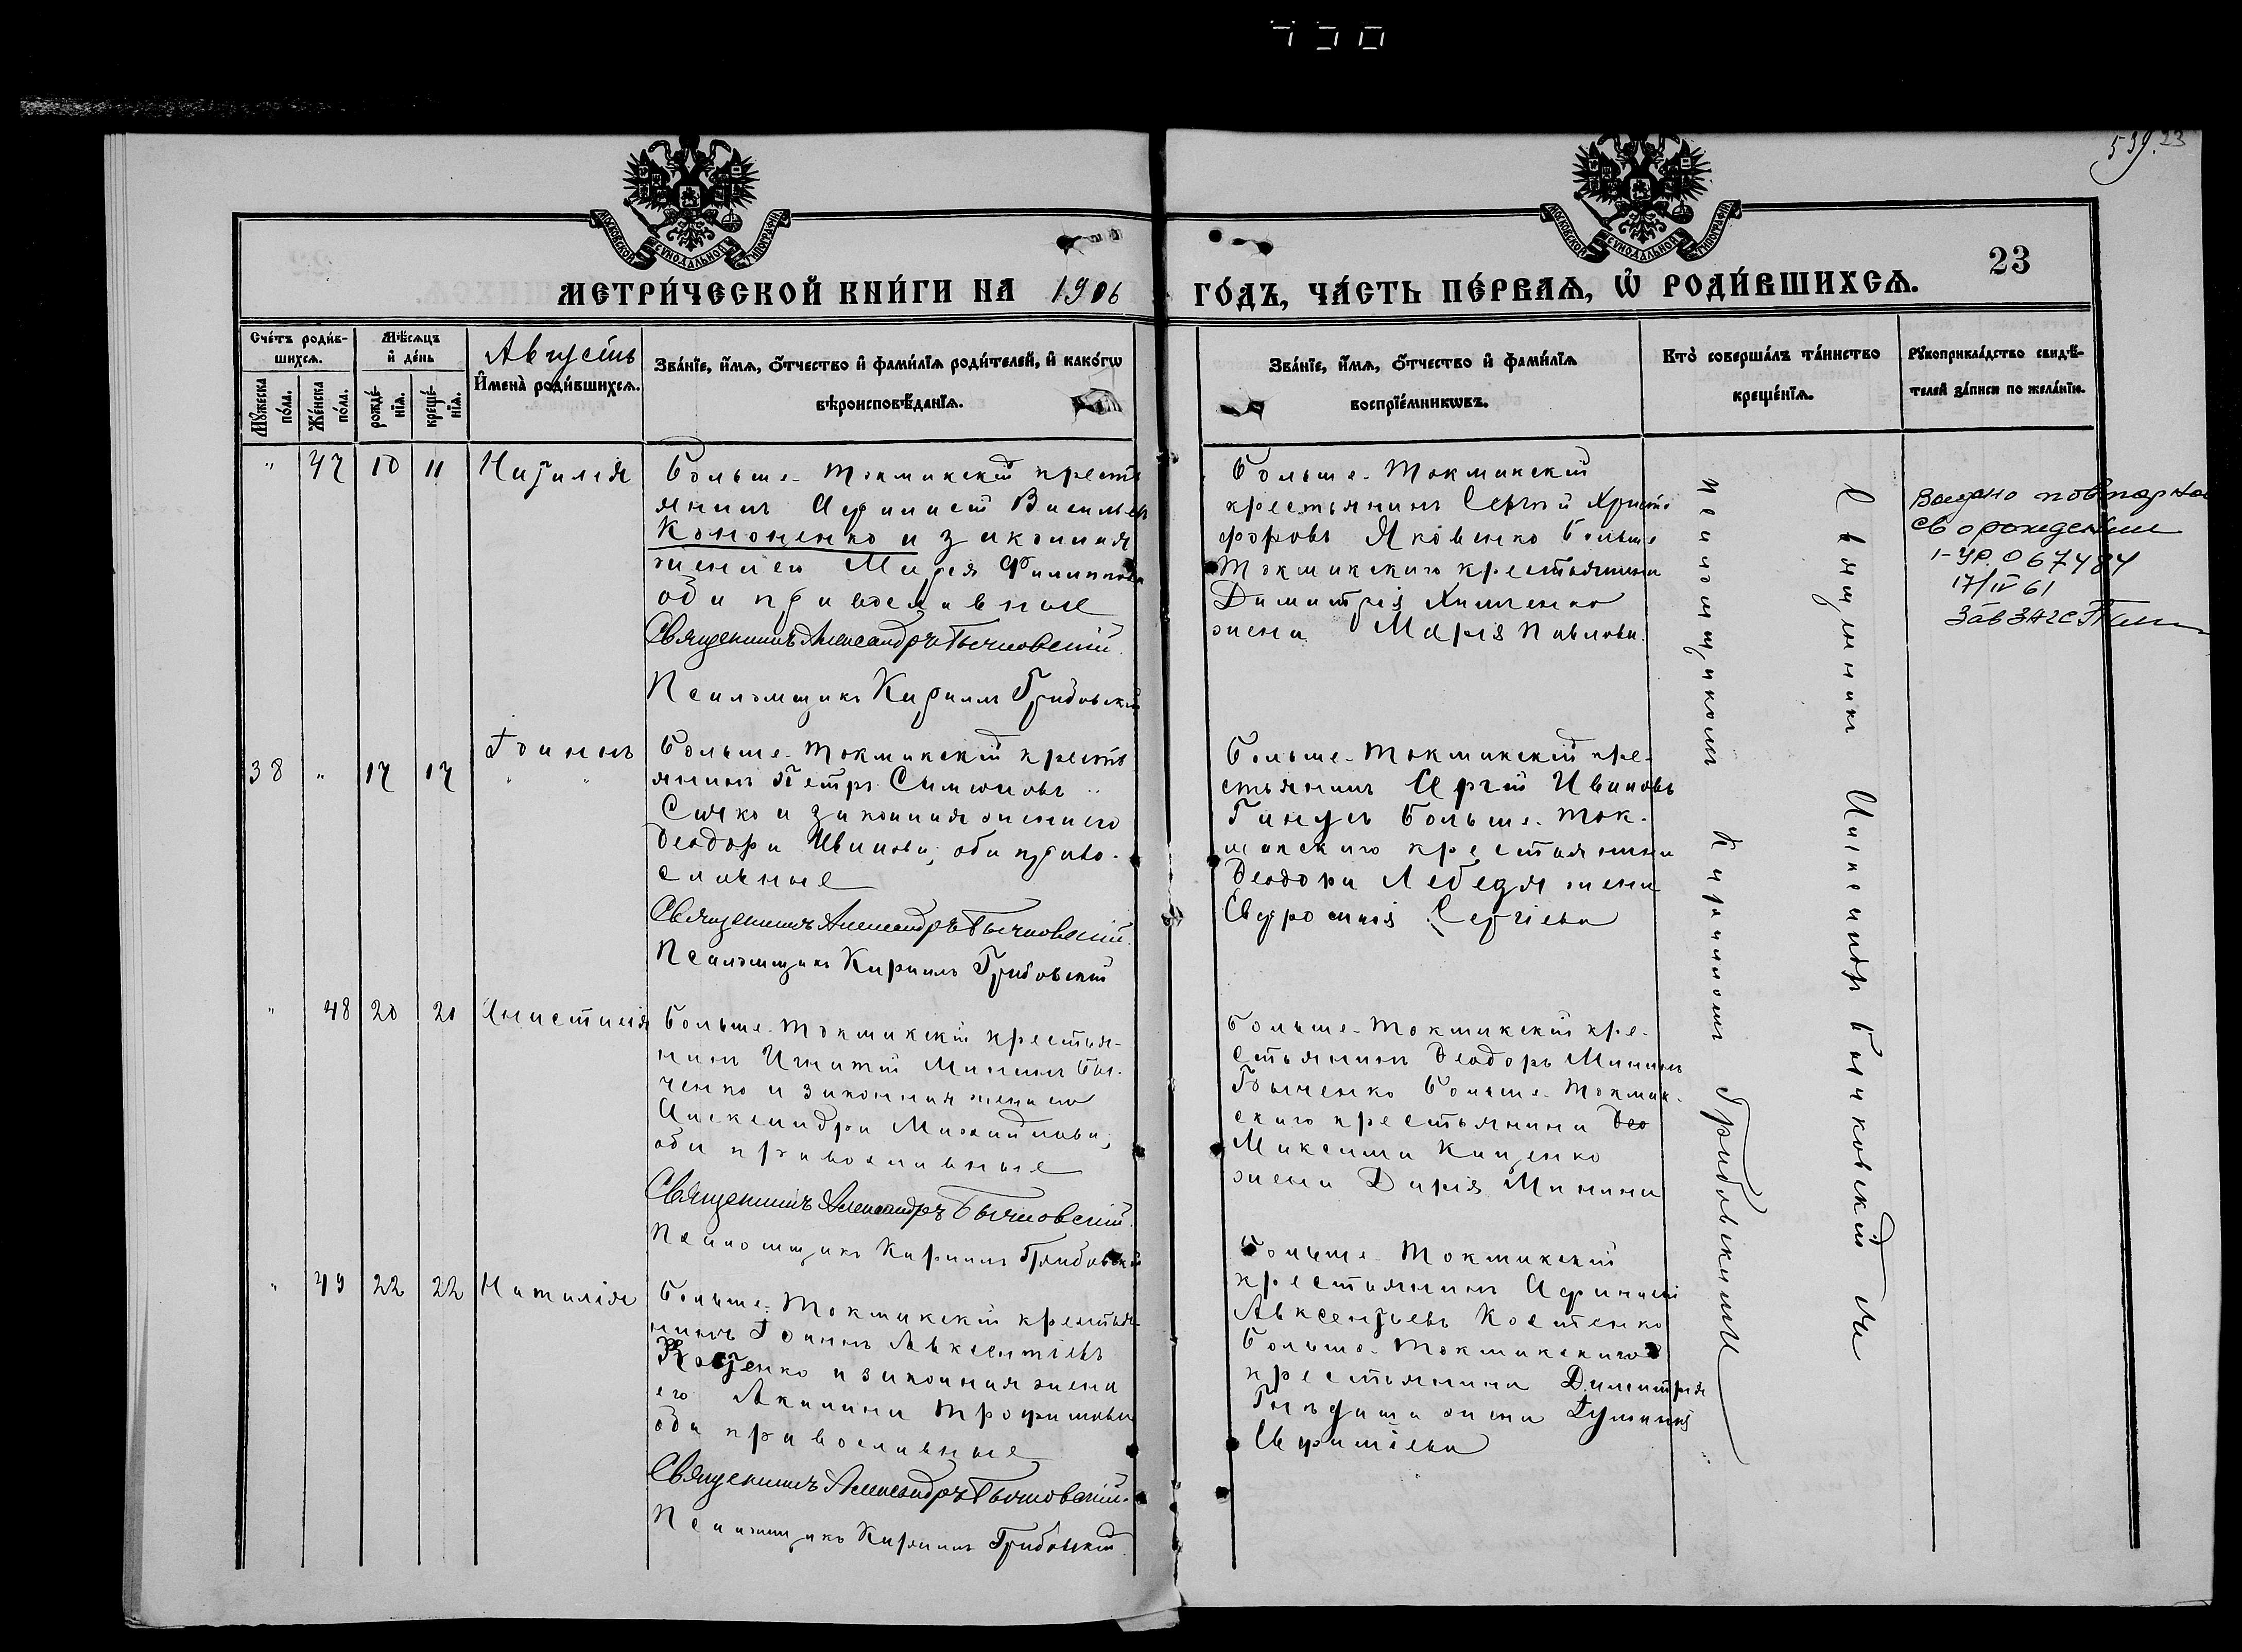 539. 23
МОСКОВСКОЙ СѴНОДАЛЬНОЙ ТИПОГРАФІИ
МОСКОВСКОЙ СѴНОДАЛЬНОЙ ТИПОГРАФІИ
23
МЕТРИ́ЧЕСКОЙ КНИ́ГИ НА 1906 ГО́ДЪ, ЧА́СТЬ ПЕ́РВАѦ, Ѡ҆ РОДИ́ВШИХСѦ.
Сче́тъ роди́в-
шихсѧ.
Мꙋ́жеска
по́ла.
Же́нска
по́ла.
Мѣ́сѧцъ
и҆ де́нь
рожде́-
нїѧ.
креще́-
нїѧ.
Августъ
И҆мена̀ роди́вшихсѧ.
Зва́нїе, и҆́мѧ, ѻ҆́тчество и҆ фами́лїѧ роди́телей, и҆ како́гѡ
вѣроисповѣ́данїѧ.
Зва́нїе, и҆́мѧ, ѻ҆́тчество и҆ фами́лїѧ
воспрїе́мникѡвъ.
Кто̀ соверша́лъ та́инство
креще́нїѧ.
Рꙋкоприкла́дство свидѣ́-
телей за́писи по жела́нїю.
" 47 10 11 Наталія
Больше-Токмакскій кресть
янинъ Афанасій Васильевъ
Кононенко и законная
жена его Марія Филиппова
оба православные
Священникъ Александръ Бычковскій.
Псаломщикъ Кириллъ Грибовскій
Больше-Токмакскій
крестьянинъ Сергѣй Христо
форовъ Яковенко Больше
Токмакскаго крестьянина
Димитрія
жена Марія Павлова.
Выдано повторное
св о рождении
067484
17/IV 61
Зав ЗАГС
38 " 17 17 Іоаннъ
" "
Больше-Токмакскій кресть
янинъ Петръ Симоновъ
Сичко и законная жена его
Ѳеодора Иванова, оба право-
славные
Священникъ Александръ Бычковскій.
Псаломщикъ Кириллъ Грибовскій
Больше-Токмакскій кре-
стьянинъ Сергій Ивановъ
Больше-Ток-
макскаго крестьянина
Ѳеодора Лебедя жена
Евфросинія Сергіева
" 48 20 21 Анастасія
Больше-Токмакскій крестья-
нинъ Игнатій Мининъ Бы-
ченко и законная жена его
Александра Михайлова,
оба православные
Священникъ Александръ Бычковскій.
Псаломщикъ Кириллъ Грибовскій
Больше-Токмакскій кре-
стьянинъ Ѳеодоръ Мининъ
Быченко Больше-Токмак-
скаго крестьянина Ѳео
Максима Куценко
жена Дарія Минина
" 49 22 22 Наталія
Больше-Токмакскій крестья-
нинъ Іоаннъ Авксентіевъ
Костенко и законная жена
его Акилина Трофимова
оба православные
Священникъ Александръ Бычковскій.
Псаломщикъ Кириллъ Грибовскій.
Больше-Токмакскій
крестьянинъ Афанасій
Авксентьевъ Костенко
Больше-Токмакскаго
крестьянина Димитрія
жена
Евфиміева
Священникъ Александръ Бычковскій съ
псаломщикомъ Кирилломъ Грибовскимъ